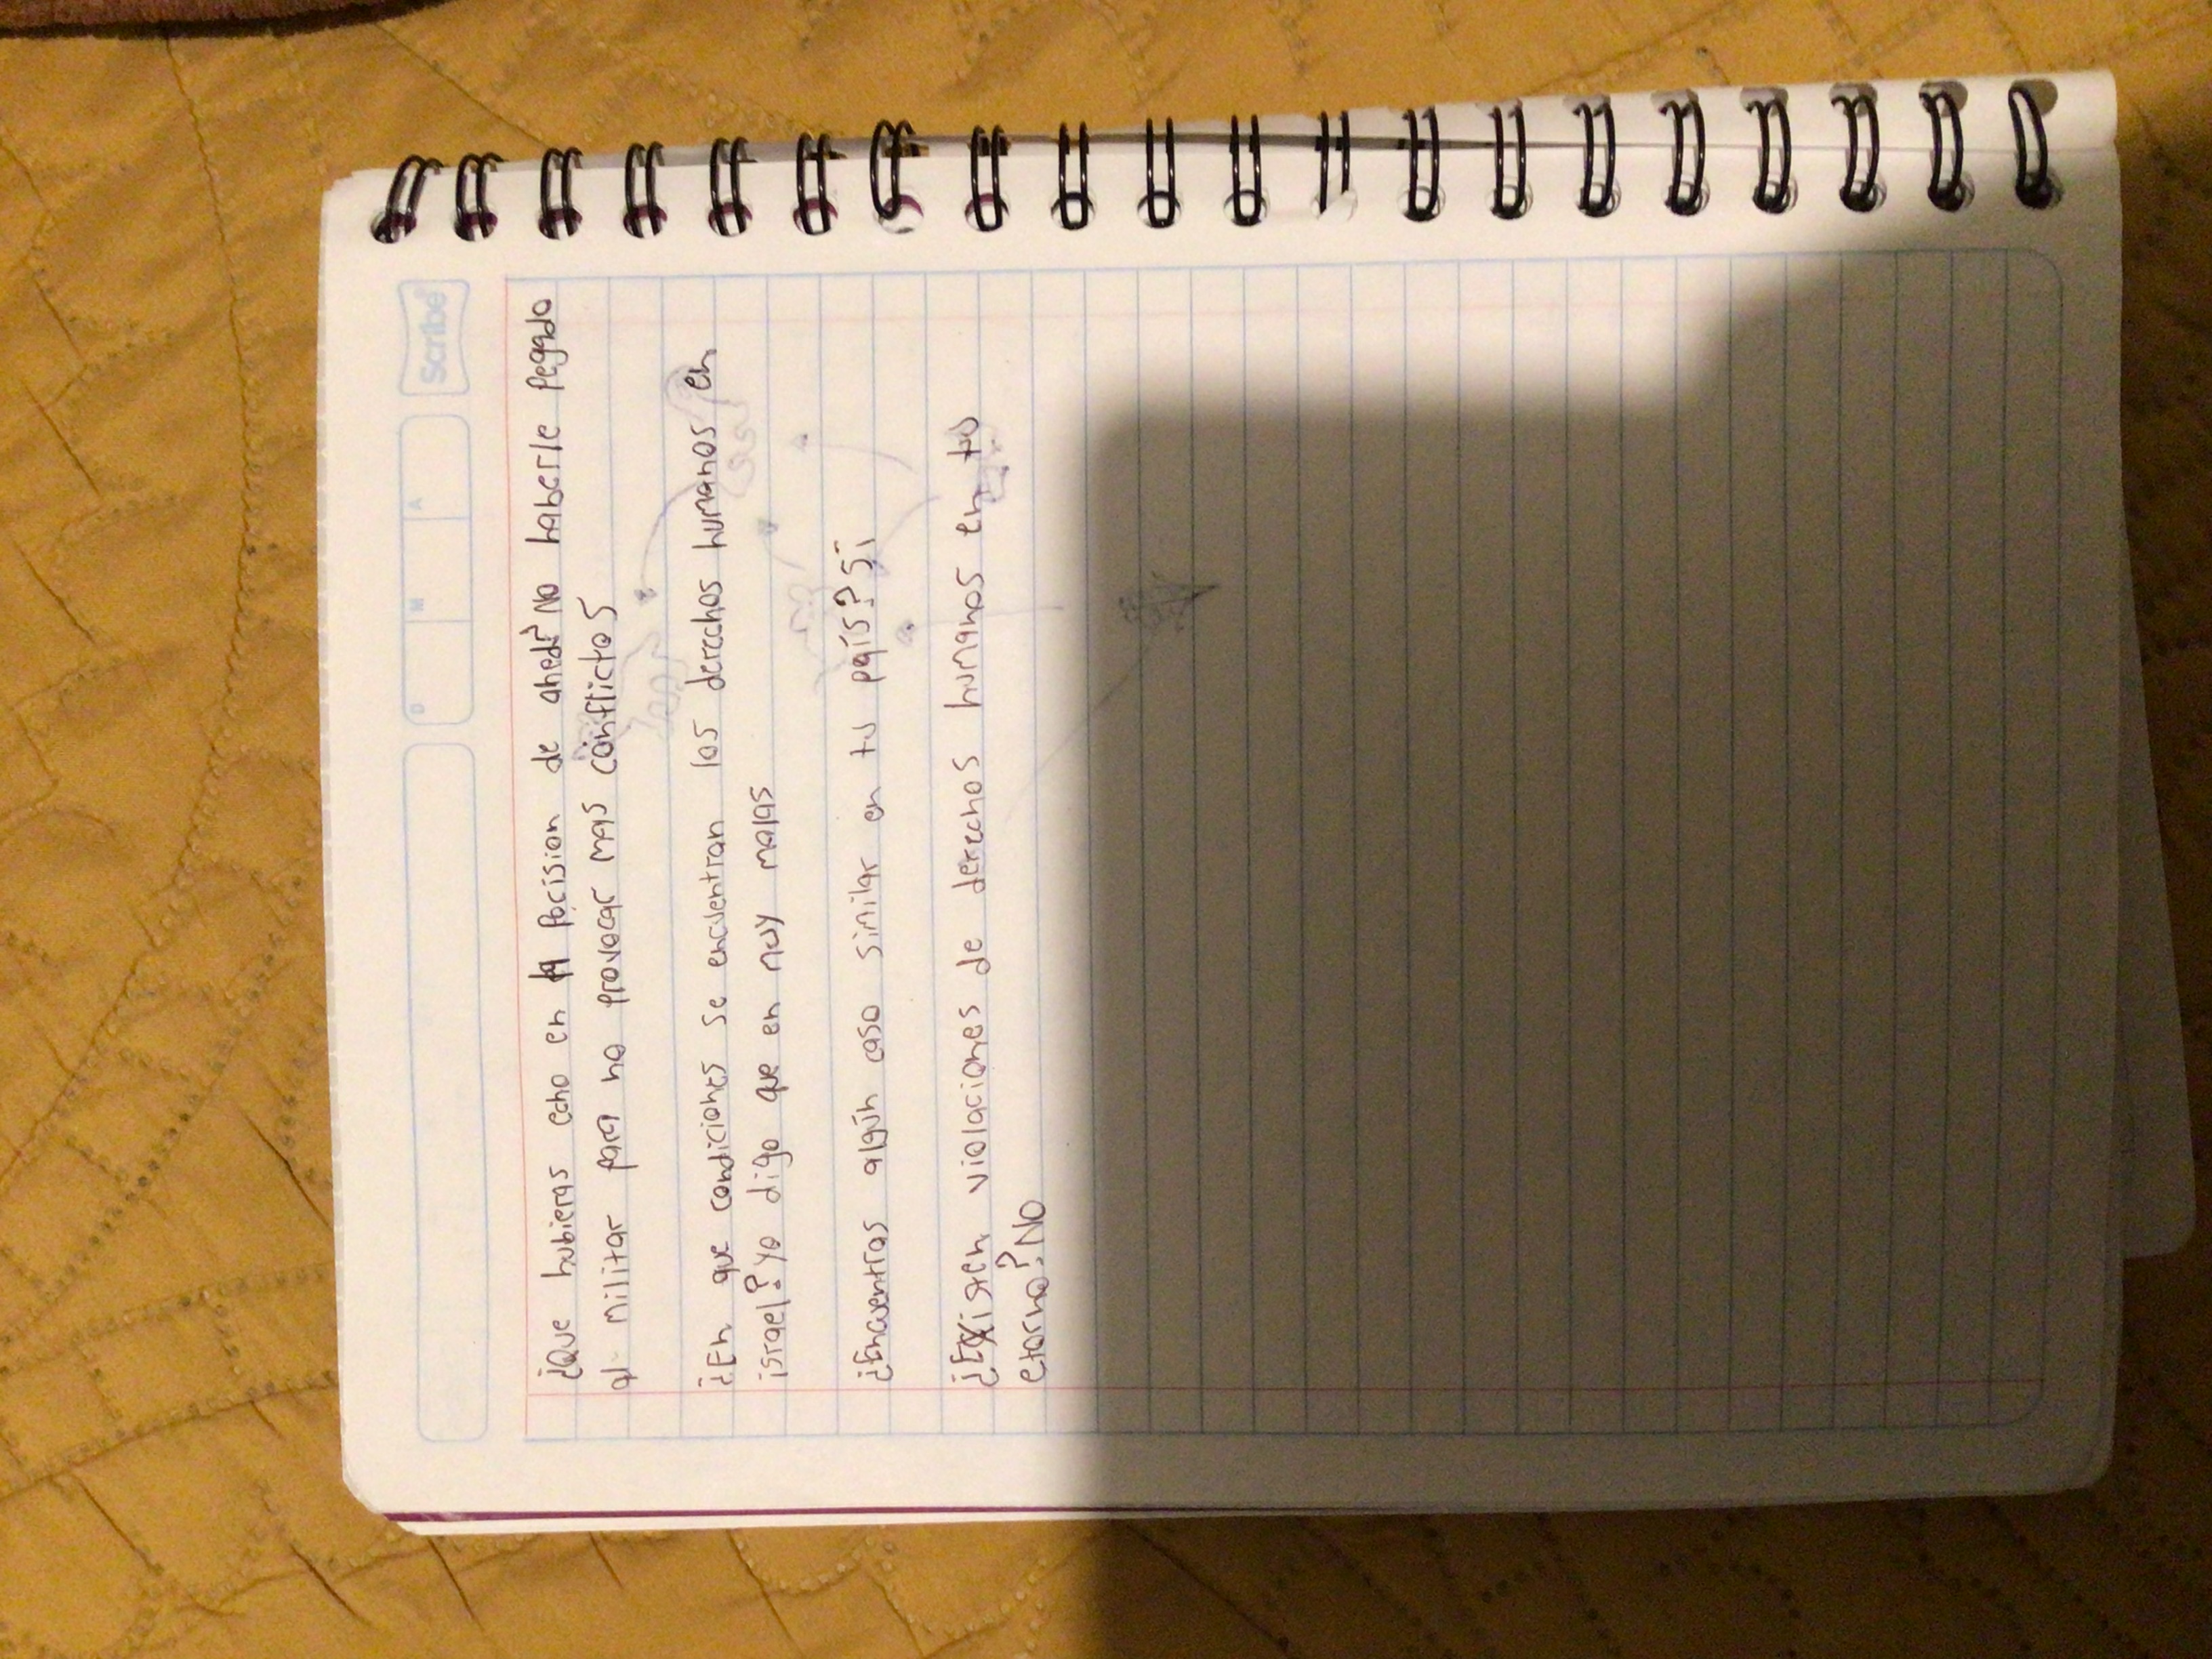 Scribe
D M A
¿Que hubieras echo en la Pocision de ahed? No haberle pegado
al militar para no provocar mas conflictos
¿En que condiciones se encuentran los derechos humanos en
israel? Yo digo que en muy malas
¿Encuentras algún caso similar en tu país? Si
¿Existen violaciones de derechos humanos en tu
etorno? No